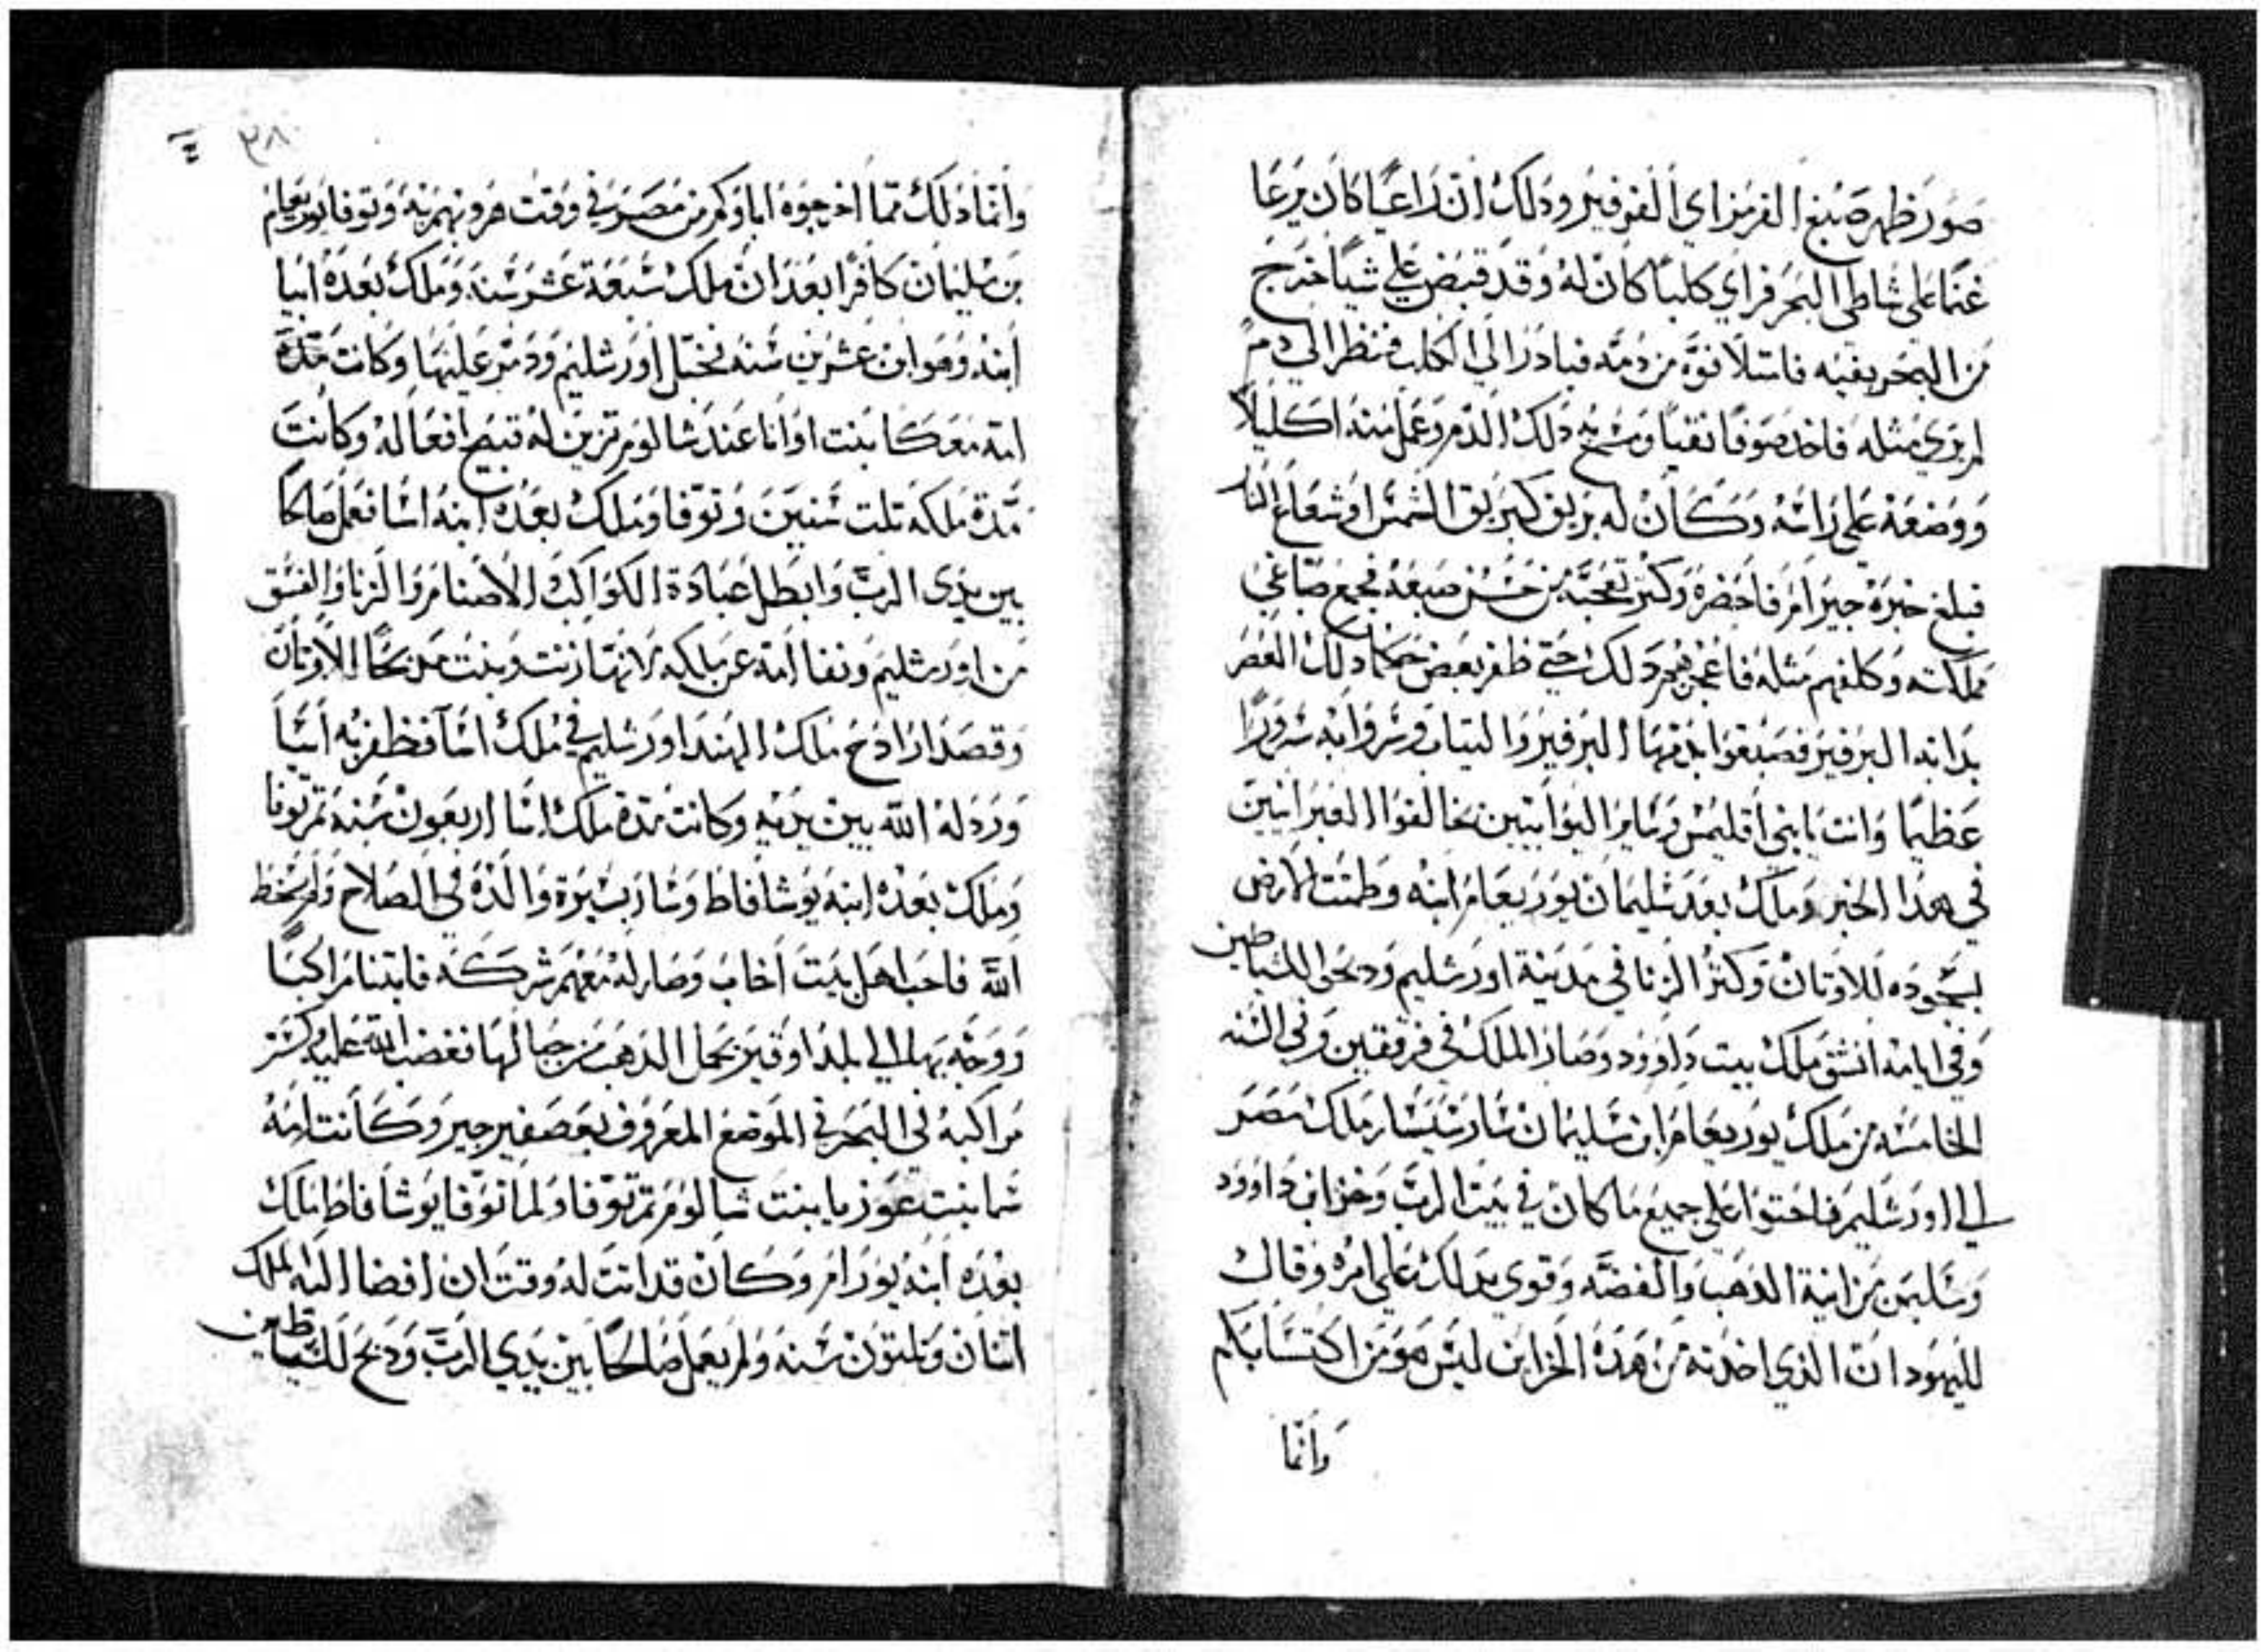 صور ظهر صبغ الفرمز اي الفرفير ودلك ان راعيا كان يرعا
غنما على شاطي البحر فراي كلبا كان له وقد قبض علي شيا خرج
من البحر بفيه فامتلا فوه من دمه فبادر الي الكلب فنظر الي دم
لم يري مثله فاخد صوفا نقيا ومسح به دلك الدم وعمل منه اكليلا
ووضعه علي راسه وكان له بريق كبريق الشمس او شعاع النار
فبلغ خبره جيرام فاحضره وكثر تعجبه من حسن صبغه فجمع صباغي
مملكته وكلفهم مثله فاعجزهم دلك حتي ظفر بعض حكما دلك العصر
بدابه البرفير فصبغوا بدمها البرفير والتياب وسروا به سرورا
عظيما وانت يابني اقليمس وساير اليوانيين تخالفوا العبرانيين
في هدا الخبر وملك بعد سليمان يوربعام ابنه وطمثت الارض
بسجوده للاوتان وكثر الزنا في مدينة اورشليم ودبحوا للشياطين
وفي ايامه انشق ملك بيت داوود وصار الملك في فرقتين وفي السنه
الخامسه من ملك يوربعام ابن سليمان سار سيسار ملك مصر
الي اورشليم فاحتوا علي جميع ما كان في بيت الرب وخزاين داوود
وسليمن من انية الدهب والفضه وقوي بدلك علي امره وقال
لليهود ان الدي اخدته من هده الخزاين ليس هو من اكتساباكم
وانما
٣٨
وانما دلك مما اخرجوه اباوكم من مصر في وقت هروبهم منه وتوفا يوربعام
بن سليمان كافرا بعد ان ملك سبعة عشر سنه وملك بعده ابيا
ابنه وهو ابن عشرين سنه اورشليم ودمر عليها وكانت مدة
امه معكا بنت اوانا عند شالوم تزين له قبيح افعاله وكانت
مدة ملكه تلت سنين وتوفا وملك بعده ابنه اسا فعمل صالحا
بين يدى الرب وابطل عبادة الكواكب الاصنام والزنا والفسق
من اورشليم ونفا امه عن ملكه لانها زنت وبنت مدبحا للاوتان
وقصد ازادح ملك الهند اورشليم في ملك اسا فظفر به اسا
ورد له الله بين يديه وكانت مدة ملك اسا اربعون سنه تم توفا
وملك بعده ابنه يوشافاط وسار بسيرة والده في الصلاح ولم يسخط
الله فاحب اهل بيت اخاب وصار له معهم شركه فابتنا مراكبا
ووجه بها الي بلد اوقير بحمل الدهب من جبالها فغضب الله عليه وكسر
مراكبه في البحر في الموضع المعروف بعصفير جبر وكانت امه
شما بنت عوزيا بنت شالوم تم توفا ولما توفا يوشافاط ملك
بعده ابنه يورام وكان قد اتت له وقت ان افضا اليه الملك
اتنان وتلتون سنه ولم يعمل صالحا بين يدي الرب ودبح للشياطين